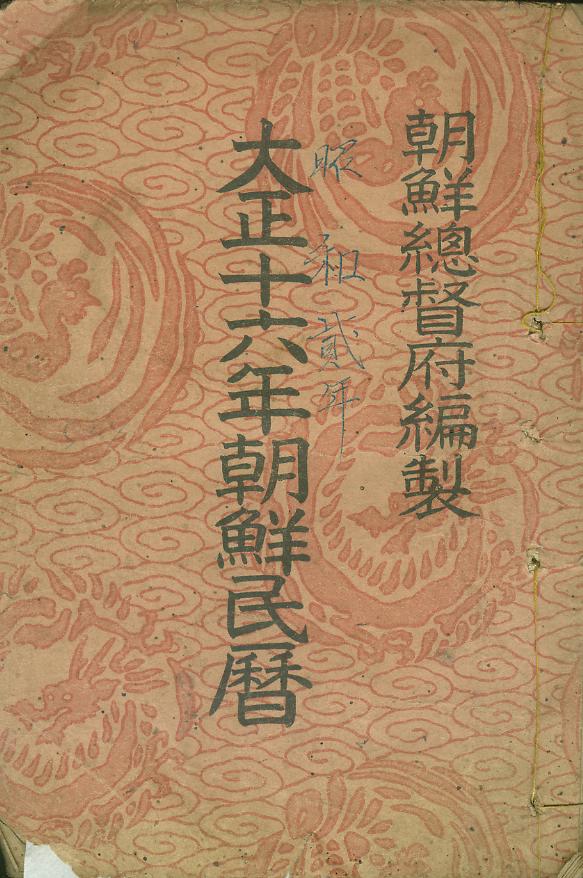 朝鮮總督府編製
昭和貳年
大正十六年朝鮮民曆